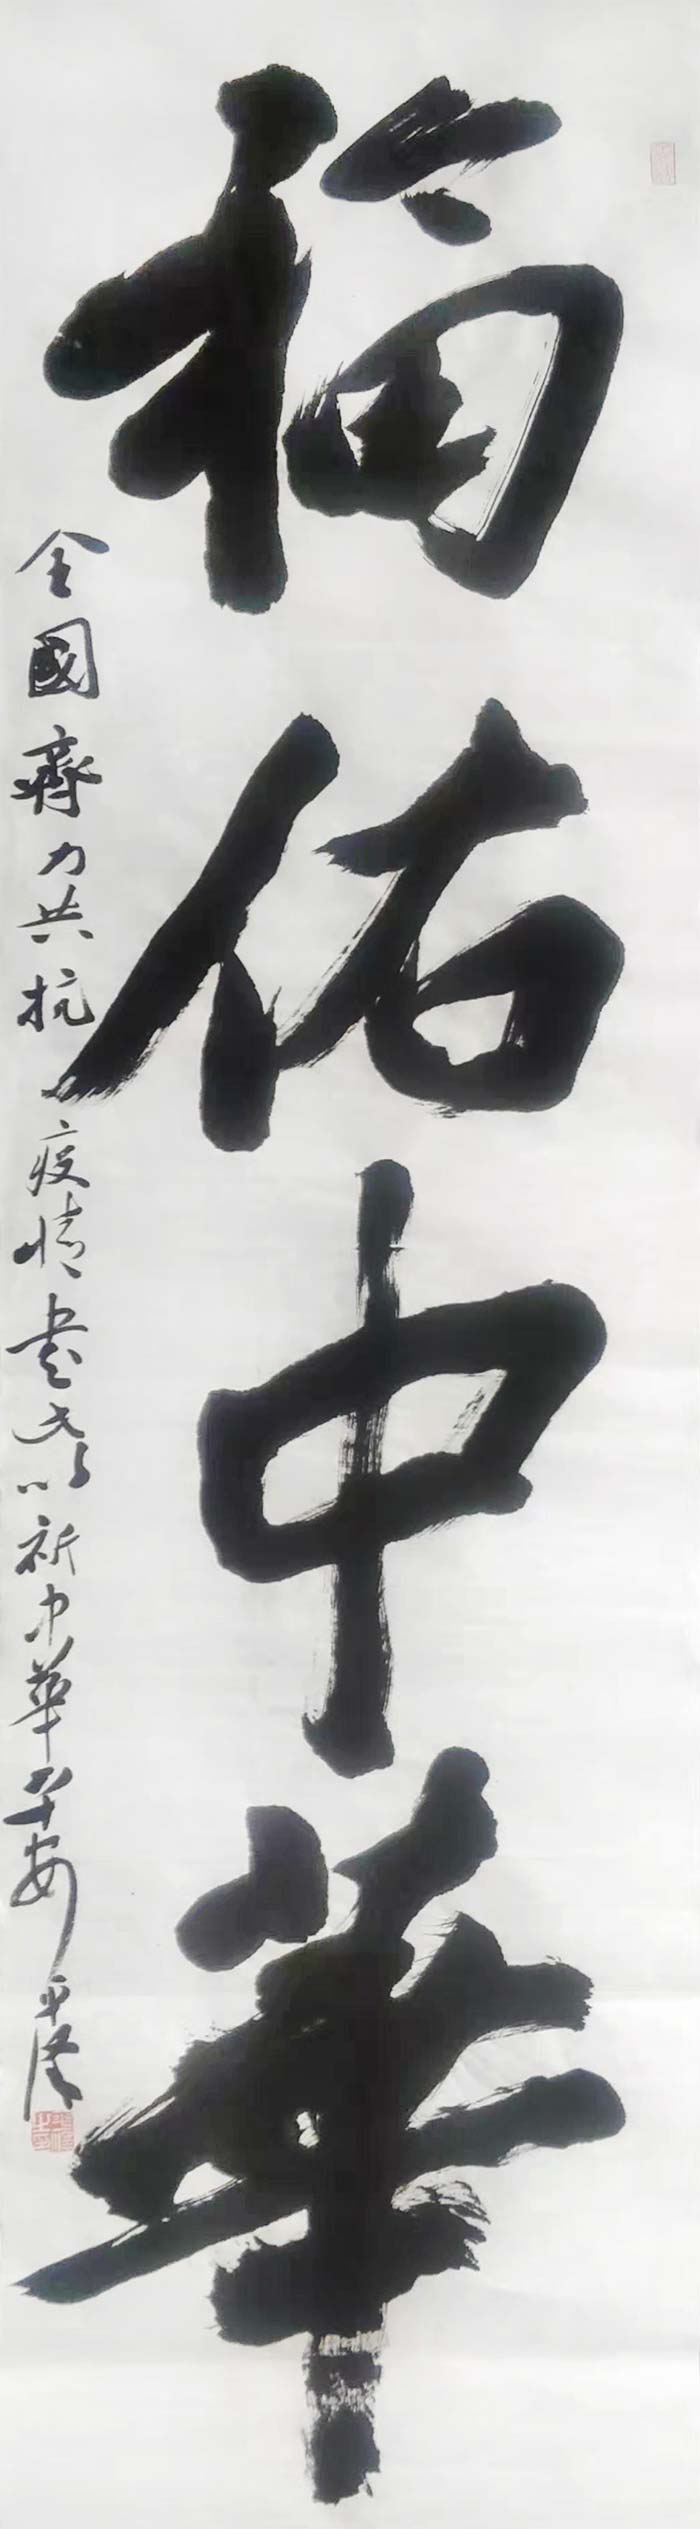 福佑中華
全國齊力共抗疫情書此以祈中華平安